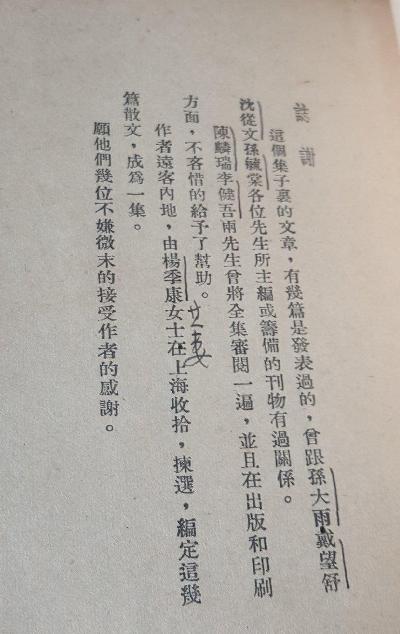 這個集子裏的文章，有幾篇是發表過的，曾跟孫大雨戴望舒
沈從文孫毓棠各位先生所主編或籌備的刊物有過關係。
陳麟瑞李健吾兩先生曾將全集審閱一遍，並且在出版和印刷
方面，不吝惜的給予了幫助。
作者遠客內地，由楊季康女士在上海收拾，揀選，編定這幾
篇散文，成爲一集。
願他們幾位不嫌微末的接受作者的感謝。